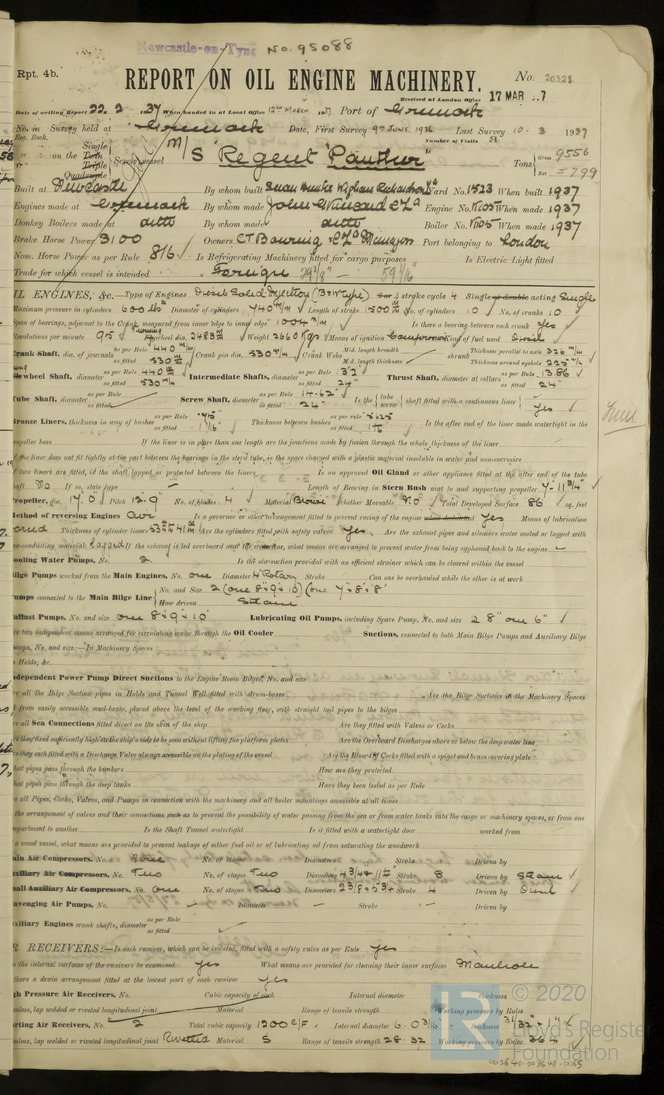 Newcastle-on-Tyne No. 95088
Rpt. 4b.
REPORT ON OIL ENGINE MACHINERY.
No. 20328
Received at London Office 17 MAR
Date of writing Report 22. 2 1937 When handed in at Local Office 12th March Port of Greenock
No. in Survey held at Greenock Date, First Survey 9th June 1936 Last Survey 10. 3 1937
Reg. Book. Number of Visits 58
Single
on the Twin Screw vessel M/S "Regent Panther" Tons Gross 9556
Triple
Quadruple Net 5799
Built at Newcastle By whom built Swan Hunter Wigham Richardson Yard No. 1523 When built 1937
Engines made at Greenock By whom made John G Kincaid & Co Ld Engine No. When made 1937
Donkey Boilers made at ditto By whom made ditto Boiler No. When made 1937
Brake Horse Power 3100 Owners C.T. Bowring & Co Ld Managers Port belonging to London
Nom. Horse Power as per Rule 816 Is Refrigerating Machinery fitted for cargo purposes Is Electric Light fitted
Trade for which vessel is intended Foreign
IL ENGINES, &c.—Type of Engines Diesel Solid Injection (B&W type) 2 or 4 stroke cycle 4 Single or double acting Single
Maximum pressure in cylinders 600 lbs Diameter of cylinders 740 m/m Length of stroke 1500 m/m No. of cylinders 10 No. of cranks 10
Span of bearings, adjacent to the Crank, measured from inner edge to inner edge 1004 m/m Is there a bearing between each crank Yes
Revolutions per minute 95 Flywheel dia. 2483 m/m Weight 2660 Kgs Means of ignition Compression Kind of fuel used Diesel
Crank Shaft, dia. of journals as per Rule 440 m/m as fitted 530 m/m Crank pin dia. 530 m/m Crank Webs Mid. length breadth Mid. length thickness shrunk Thickness parallel to axis 326 m/m Thickness around eyehole 225 m/m
Flywheel Shaft, diameter as per Rule 440 as fitted 530 m/m Intermediate Shafts, diameter as per Rule as fitted 24" Thrust Shaft, diameter at collars as per Rule 13.86 as fitted 24"
Tube Shaft, diameter as per Rule as fitted Screw Shaft, diameter as per Rule 14.62 as fitted 24" Is the tube screw shaft fitted with a continuous liner Yes
Bronze Liners, thickness in way of bushes as per Rule as fitted Thickness between bushes as per rule as fitted Is the after end of the liner made watertight in the
propeller boss If the liner is in more than one length are the junctions made by fusion through the whole thickness of the liner
If the liner does not fit tightly at the part between the bearings in the stern tube, is the space charged with a plastic material insoluble in water and non-corrosive
If two liners are fitted, is the shaft lapped or protected between the liners Is an approved Oil Gland or other appliance fitted at the after end of the tube
shaft No If so, state type Length of Bearing in Stern Bush next to and supporting propeller
Propeller, dia. 17' 0" Pitch No. of blades 4 Material Bronze whether Moveable No Total Developed Surface 86 sq. feet
Method of reversing Engines Is a governor or other arrangement fitted to prevent racing of the engine when declutched Yes Means of lubrication
Forced Thickness of cylinder liners Are the cylinders fitted with safety valves Yes Are the exhaust pipes and silencers water cooled or lagged with
non-conducting material Lagged If the exhaust is led overboard near the waterline, what means are arranged to prevent water from being syphoned back to the engine
Cooling Water Pumps, No. 2 Is the sea suction provided with an efficient strainer which can be cleared within the vessel
Bilge Pumps worked from the Main Engines, No. one Diameter Rotary Stroke Can one be overhauled while the other is at work
Pumps connected to the Main Bilge Line No. and Size How driven Steam
Ballast Pumps, No. and size one 8 × 9 × 10 Lubricating Oil Pumps, including Spare Pump, No. and size 2 8" one 6"
Are two independent means arranged for circulating water through the Oil Cooler Suctions, connected to both Main Bilge Pumps and Auxiliary Bilge
Pumps, No. and size:—In Machinery Spaces
In Holds, &c.
Independent Power Pump Direct Suctions to the Engine Room Bilges, No. and size
Are all the Bilge Suction pipes in Holds and Tunnel Well fitted with strum-boxes Are the Bilge Suctions in the Machinery Spaces
led from easily accessible mud-boxes, placed above the level of the working floor, with straight tail pipes to the bilges
Are all Sea Connections fitted direct on the skin of the ship Are they fitted with Valves or Cocks
Are they fixed sufficiently high on the ship's side to be seen without lifting the platform plates Are the Overboard Discharges above or below the deep water line
Are they each fitted with a Discharge Valve always accessible on the plating of the vessel Are the Blow Off Cocks fitted with a spigot and brass covering plate
What pipes pass through the bunkers How are they protected
What pipes pass through the deep tanks Have they been tested as per Rule
Are all Pipes, Cocks, Valves, and Pumps in connection with the machinery and all boiler mountings accessible at all times
Is the arrangement of valves and their connections such as to prevent the possibility of water passing from the sea or from water tanks into the cargo or machinery spaces, or from one
compartment to another Is the Shaft Tunnel watertight Is it fitted with a watertight door worked from
If a wood vessel, what means are provided to prevent leakage of either fuel oil or of lubricating oil from saturating the woodwork
Main Air Compressors, No. None No. of stages Diameters Stroke Driven by
Auxiliary Air Compressors, No. Two No. of stages Two Diameters Stroke 8 Driven by Steam
Small Auxiliary Air Compressors, No. one No. of stages two Diameters Stroke 4 Driven by Diesel
Scavenging Air Pumps, No. Diameter Stroke Driven by
Auxiliary Engines crank shafts, diameter as per Rule as fitted
R RECEIVERS:—Is each receiver, which can be isolated, fitted with a safety valve as per Rule Yes
Can the internal surfaces of the receivers be examined Yes What means are provided for cleaning their inner surfaces Manhole
Is there a drain arrangement fitted at the lowest part of each receiver Yes
High Pressure Air Receivers, No. Cubic capacity of each Internal diameter thickness
Seamless, lap welded or riveted longitudinal joint Material Range of tensile strength Working pressure by Rules
Starting Air Receivers, No. 2 Total cubic capacity 1200 c/F Internal diameter thickness
Seamless, lap welded or riveted longitudinal joint Rivetted Material S Range of tensile strength 28-32 Working pressure by Rules 364
© 2020
Lloyd's Register
Foundation
LR
003640-003648-0055